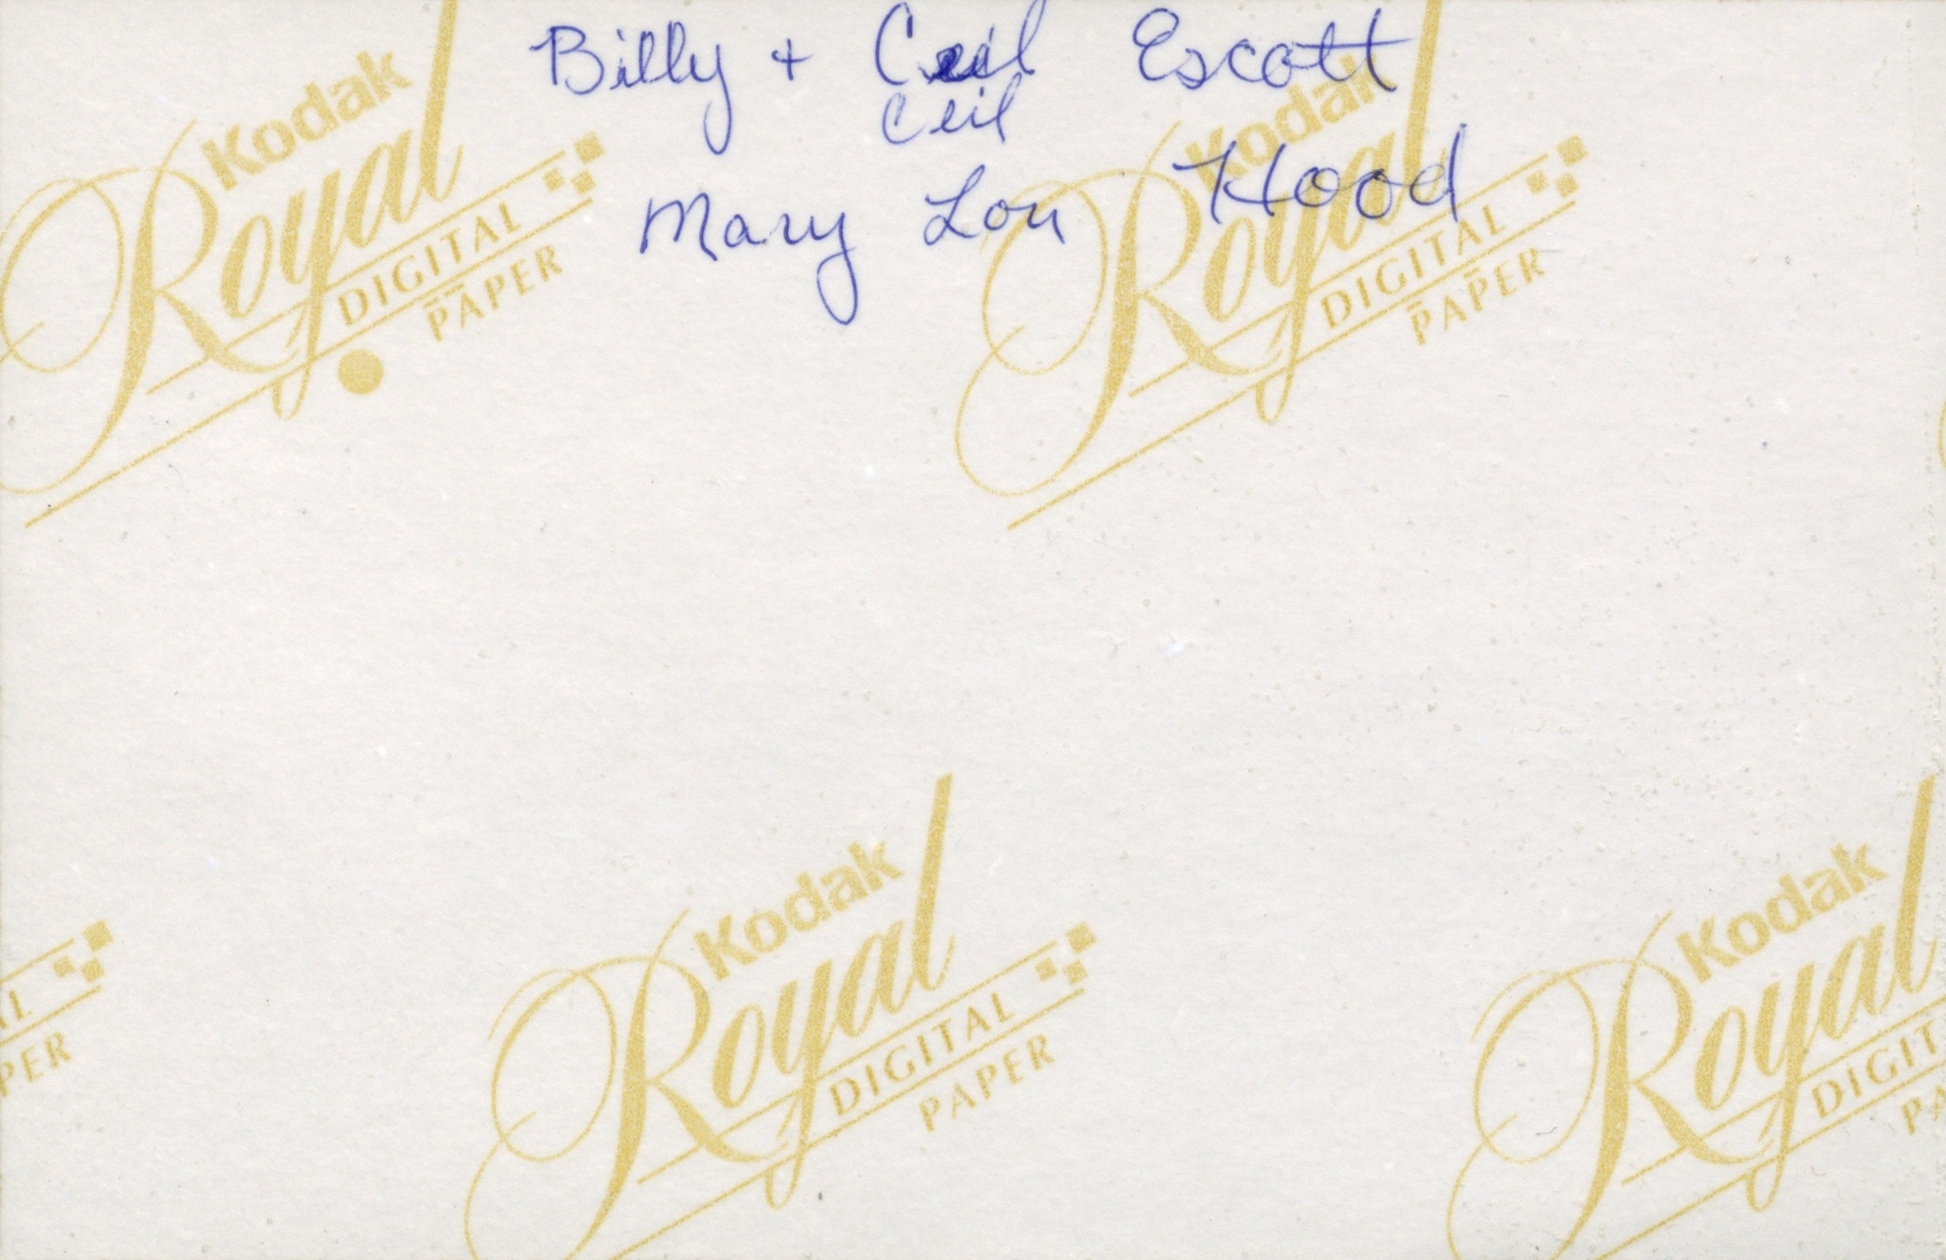 Billy + Ceil Escott
Ceil
Mary Lou Hood
Kodak
Royal
DIGITAL
PAPER
Kodak
Royal
DIGITAL
PAPER
Kodak
Royal
DIGITAL
PAPER
Kodak
Royal
DIGIT
PA
AL
PER